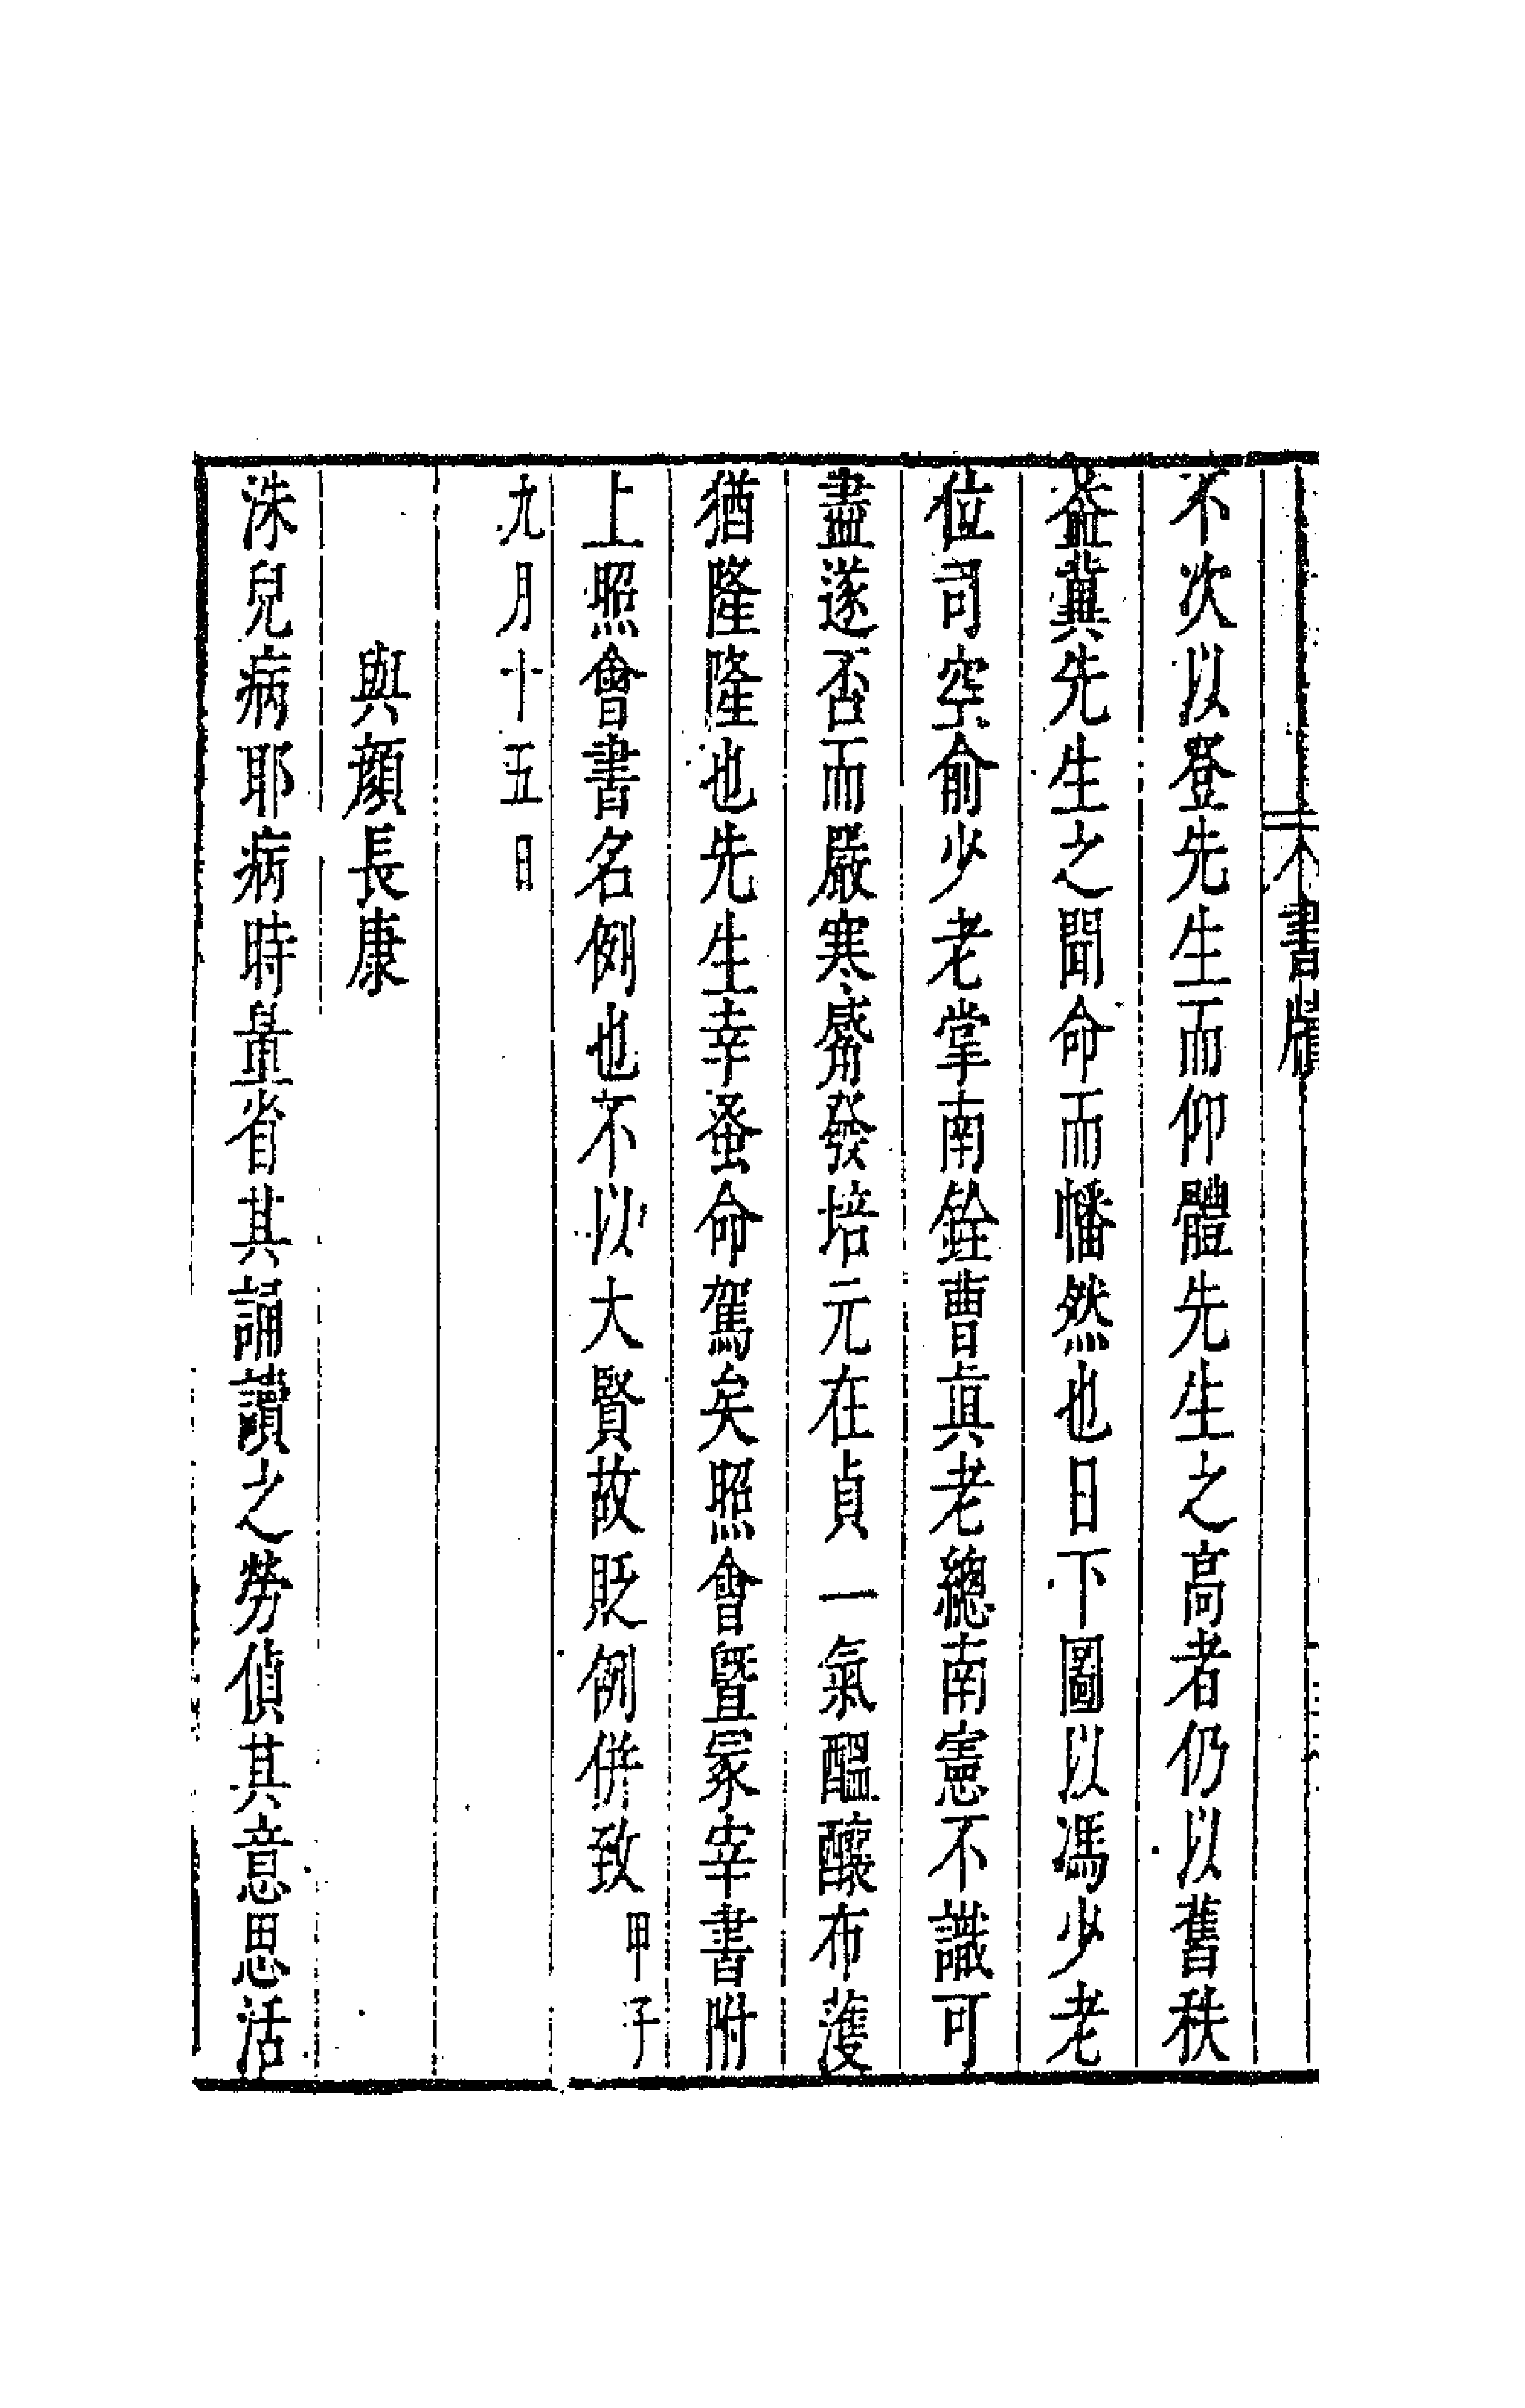 書牘
不次以登先生而仰體先生之高者仍以舊秩
葢冀先生之聞命而幡然也日下圖以馮少老
位司空俞少老掌南銓曹眞老總南憲不識可
盡遂否而嚴寒觱發培元在貞一氣醞釀布濩
猶隆隆也先生幸蚤命駕矣照會曁冢宰書附
上照會書名例也不以大賢故貶例併致甲子
九月十五日
與顏長康
洙兒病耶病時量省其誦讀之勞偵其意思活